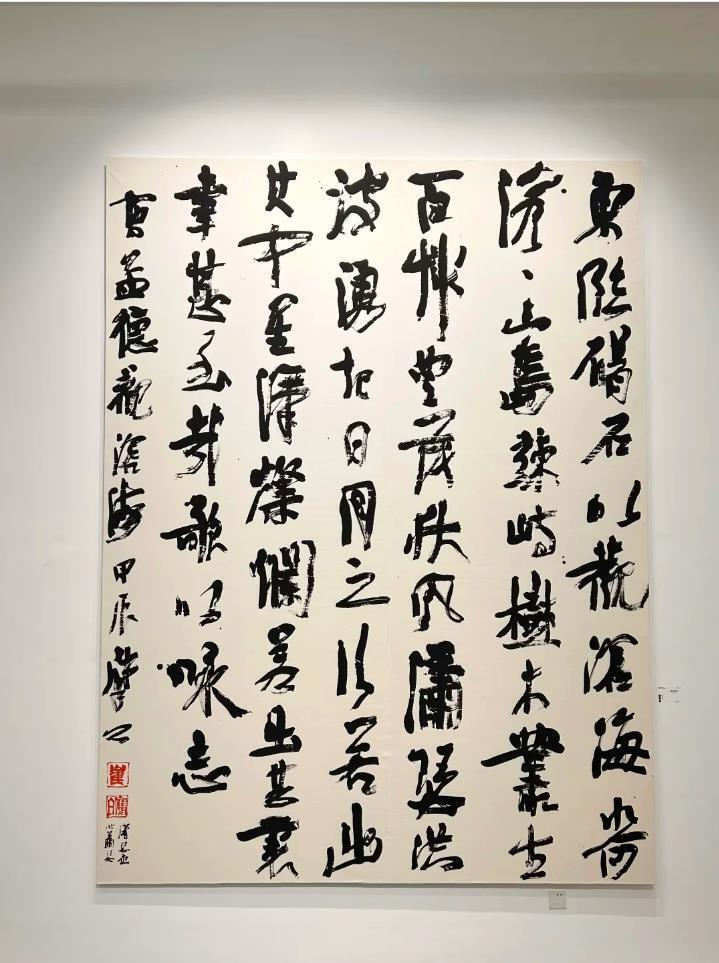 東臨碣石以觀滄海水何
澹〻山島竦峙樹木叢生
百草豐茂秋風瀟瑟洪
波湧起日月之行若出
其中星漢燦爛若出其裏
幸甚至哉歌以咏志
曹孟德觀滄海甲辰